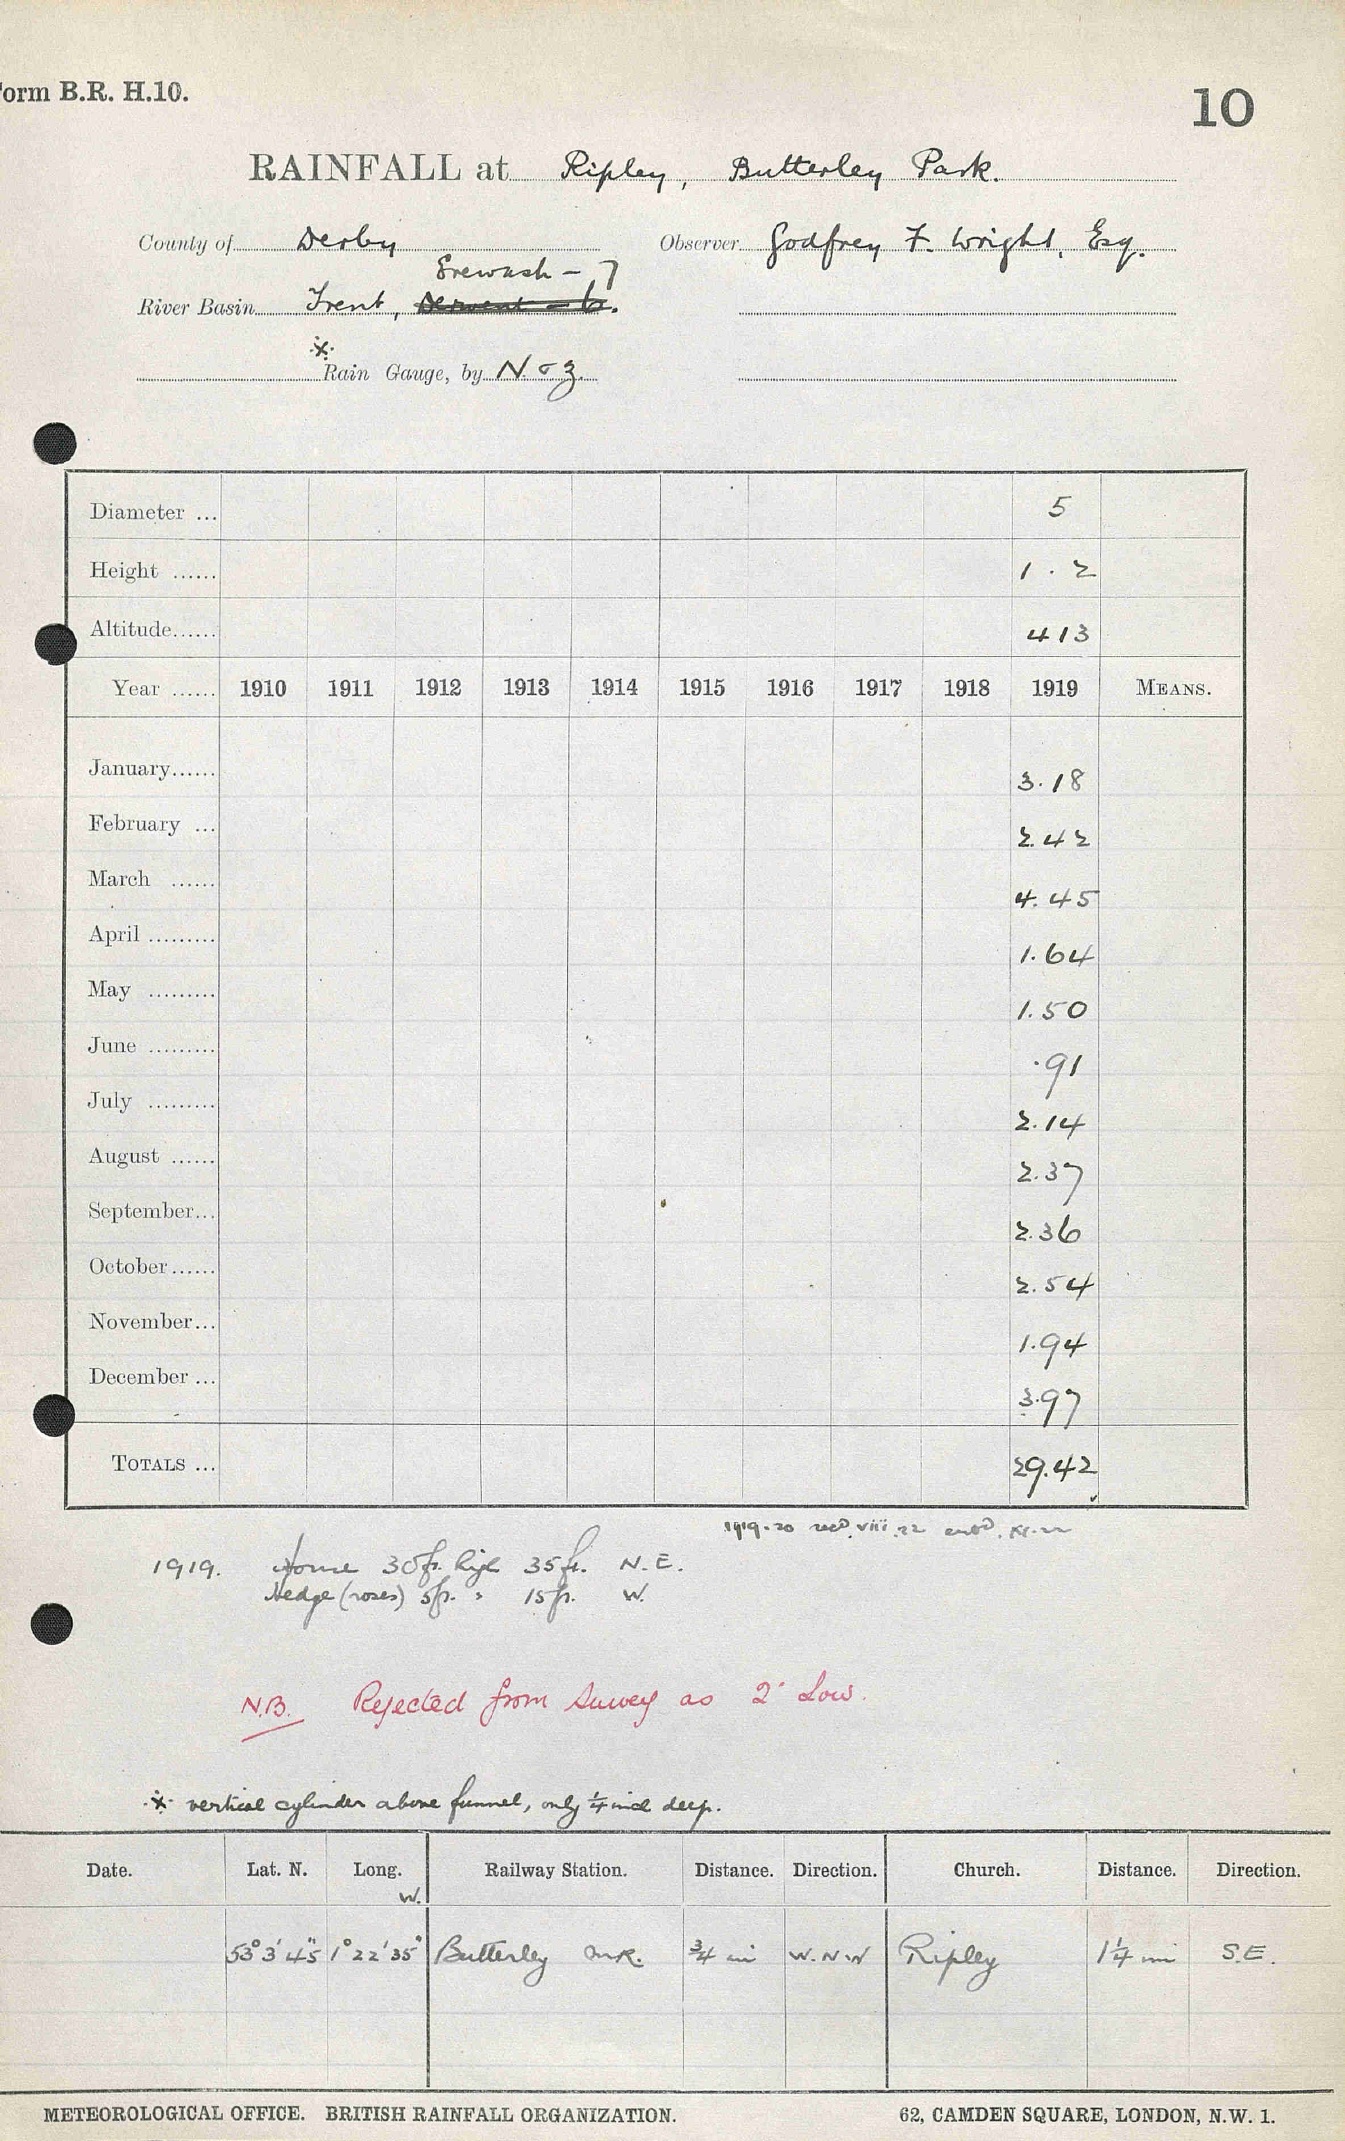 Form B.R. H.10.
10
RAINFALL at Ripley, Butterley Park.
County of Derby Observer Godfrey F. Wright, Esq.
Erewash - 7
River Basin Trent, Derwent - 6.
* Rain Gauge, by N & Z.
Diameter ... 5
Height ...... 1 . 2
Altitude...... 413
Year ...... 1910 1911 1912 1913 1914 1915 1916 1917 1918 1919 MEANS.
January...... 3.18
February ... 2.42
March ...... 4.45
April ......... 1.64
May ......... 1.50
June ......... .91
July ......... 2.14
August ...... 2.37
September... 2.36
October...... 2.54
November... 1.94
December ... 3.97
TOTALS ... 29.42
1919-20 recd. viii.22 entd. xi.22
1919. House 30ft. high 35ft. N.E.
Hedge (roses) 5ft. " 15ft. W.
N.B. Rejected from Survey as 2" Low.
* vertical cylinder above funnel, only 1/4 inch deep.
Date. Lat. N. Long. W. Railway Station. Distance. Direction. Church. Distance. Direction.
53° 3' 45" 1° 22' 35" Butterley M.R. 3/4 mi W.N.W Ripley 1 1/4 mi S.E.
METEOROLOGICAL OFFICE. BRITISH RAINFALL ORGANIZATION. 62, CAMDEN SQUARE, LONDON, N.W. 1.